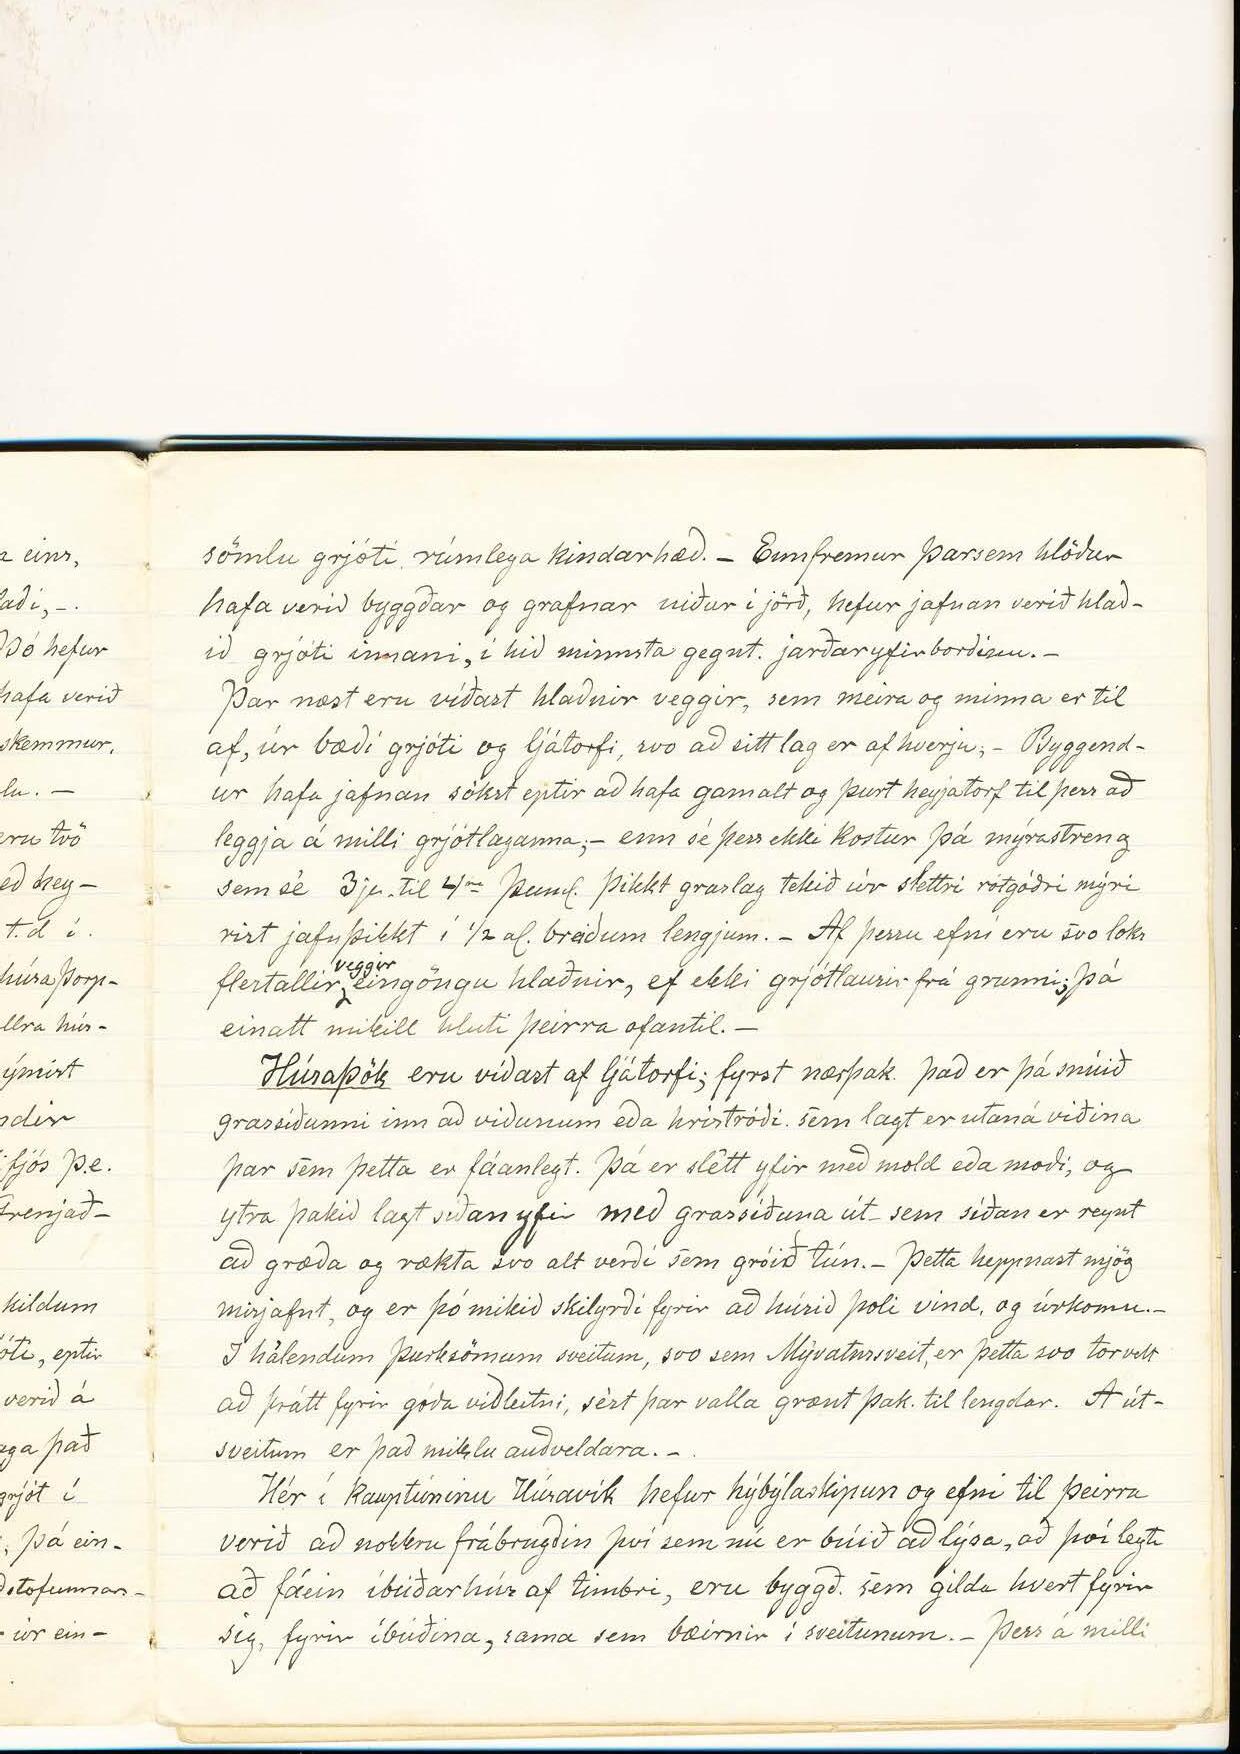 eins,
laði, -.
Þó hefur
hafa verið
skemmur,
lu. -
eru tvö
eð hey-
t.d í.
húsaþorp-
llra hús-
ýmist
ndir
fjós þ.e.
Grenjað-
kildum
óti, eptir
verið á
aga það
grjót í
, þá ein-
ðstofunnar-
úr ein-
sömlu grjóti rúmlega kindarhæð. - Ennfremur þarsem hlöður
hafa verið byggðar og grafnar niður í jörð, hefur jafnan verið hlað-
ið grjóti innani, í hið minnsta gegnt. jarðaryfirborðinu. -
Þar næst eru víðast hlaðnir veggir, sem meira og minna er til
af, úr bæði grjóti og ljátorfi, svo að sitt lag er af hverju; - Byggend-
ur hafa jafnan sókst eptir að hafa gamalt og þurt heyjatorf til þess að
leggja á milli grjótlaganna; - enn sé þess ekki kostur þá mýrastreng
sem sé 3ja til 4ra þuml. þikkt graslag tekið úr slettri rótgóðri mýri
rist jafnþikkt í 1/2 al. breiðum lengjum. - Af þessu efni eru svo loks
flestallir veggir eingöngu hlaðnir, ef ekki grjótlausir frá grunni; þá
einatt mikill hluti þeirra ofantil. -
Húsaþök eru víðast af ljátorfi; fyrst nærþak. það er þá snúið
grassíðunni inn að viðunum eða hrístróði. sem lagt er utaná viðina
þar sem þetta er fáanlegt. Þá er slétt yfir með mold eða moði, og
ytra þakið lagt síðan yfir með grassíðuna út - sem síðan er reynt
að græða og rækta svo alt verði sem gróið tún. - Þetta heppnast mjög
misjafnt, og er þó mikið skilyrði fyrir að húsið þoli vind, og úrkomu. -
I hálendum þurksömum sveitum, svo sem Mývatnsveit, er þetta svo torvelt
að þrátt fyrir góða viðleitni, sést þar valla grænt þak. til lengdar. A út-
sveitum er það miklu auðveldara. -.
Hér í kauptúninu Húsavík hefur hýbýlaskipun og efni til þeirra
verið að nokkru frábrugðin því sem nú er búið að lýsa, að því legti
að fáein íbúðarhús af timbri, eru byggð. sem gilda hvert fyrir
sig, fyrir íbúðina, sama sem bæirnir í sveitunum. - Þess á milli